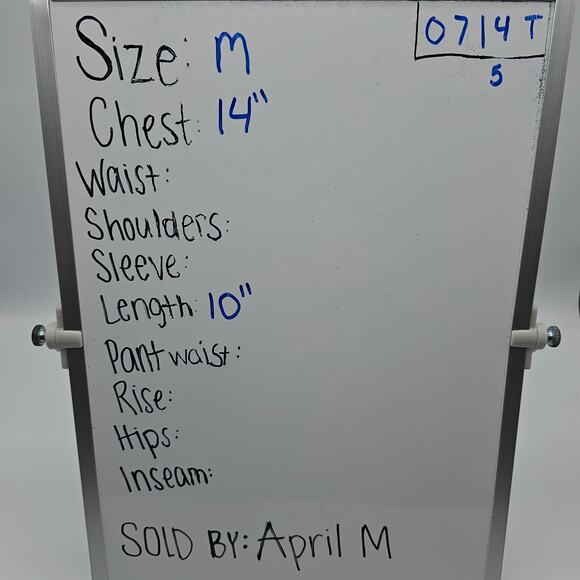 Size: M
0714 T
5
Chest: 14"
Waist:
Shoulders:
Sleeve:
Length: 10"
Pant waist:
Rise:
Hips:
Inseam:
SOLD BY: April M